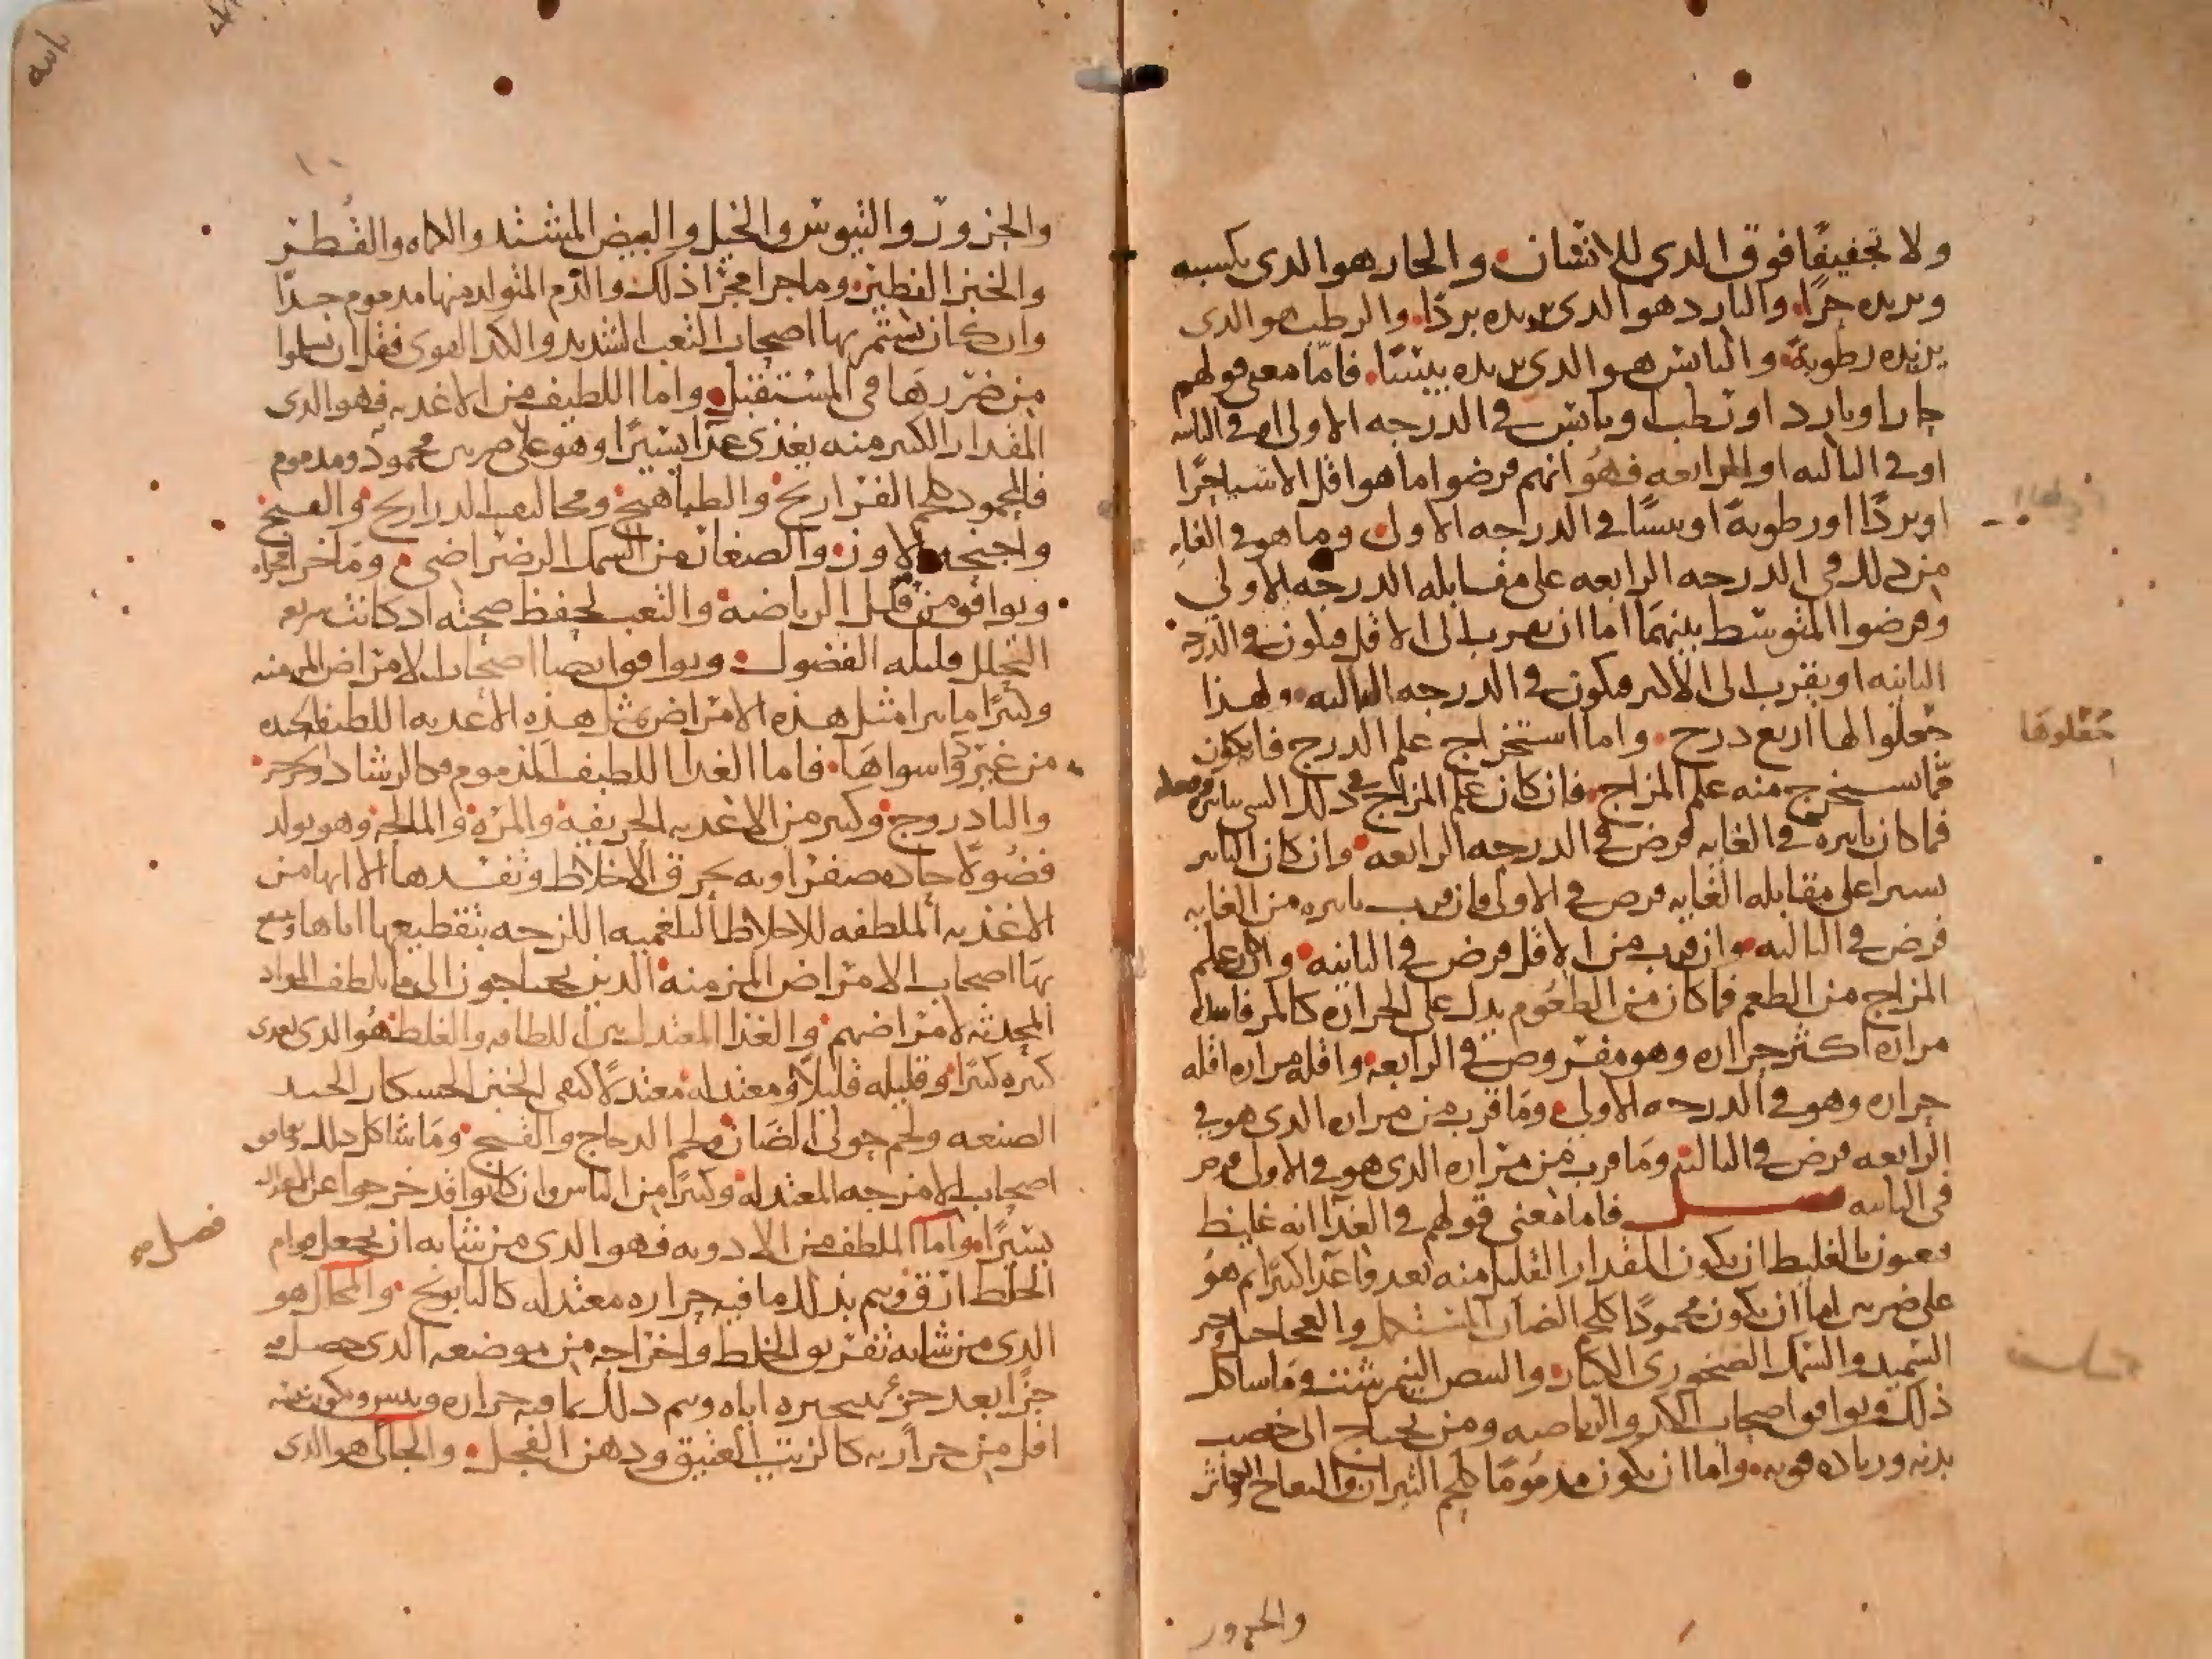 ولا تجفيفا فوق الدى للانسان والحار هو الدى يكسبه
ويريده حرا والبارد هو الدى يريده بردا والرطب هو الدى
يزيده رطوبة واليابس هو الدى يريده يبسا فاما معنى قولهم
حار او بارد او رطب او يابس فى الدرجه الاولى او فى الثانيه
او فى الثالثه او الرابعه فهو انهم فرضوا ما هو اقل الاشيا حرا
او بردا او رطوبة او يبسا فى الدرجه الاولى وما هو فى الغايه
من ذلك فى الدرجه الرابعه على مقابله الدرجه الاولى
وفرضوا المتوسط بينهما اما ان يقرب الى الاقل فيكون فى الدرجه
الثانيه او يقرب الى الاكثر فيكون فى الدرجه الثالثه ولهذا
جعلوا لها اربع درج واما استخراج علم الدرج فانه يكون
مما يستخرج منه علم المزاج فان كان علم المزاج فى ذلك الشى بتاثيره فقط
فما كان تاثيره فى الغايه فرض فى الدرجه الرابعه وان كان التاثير
يسيرا على مقابله الغايه فرض فى الاولى وان قرب تاثيره من الغايه
فرض فى الثالثه وان قرب من الاقل فرض فى الثانيه وان علم
المزاج من الطعم فما كان من الطعوم يدل على الحراره كالمر فاشده
مراره اكثر حراره وهو مفروض فى الرابعه واقله مراره اقله
حراره وهو فى الدرجه الاولى وما قرب من مراره الدى هو فى
الرابعه فرض فى الثالثه وما قرب من مراره الدى هو فى الاولى فرض
فى الثانيه فصل فاما معنى قولهم فى الغذا انه غليظ
فيعنون بالغليظ ان يكون المقدار القليل منه يغدو غدا كثيرا ثم هو
على ضربين اما ان يكون محمودا كلحم الضان المستكمل والعجاجيل وخبز
السميد والسمك الصخورى الكبار والبيض النيمرشت وما شاكل
ذلك ويوافق اصحاب الكد والرياضه ومن يحتاج الى خصب
بدنه وزياده قوته واما ان يكون مذموما كلحم الثيران والنعاج الهوائر
والجزور
جعلوها
والجزور والتيوس والخيل والبيض المشتد والكماه والفطر
والخبز الفطير وما جرا مجرا ذلك والدم المتولد منها مدموم جدا
وان كان يستمريها اصحاب التعب الشديد والكد القوى فقل ان يسلموا
من ضررها فى المستقبل واما اللطيف من الاغديه فهو الدى
المقدار الكثير منه يغذى غذا يسيرا وهو على ضربين محمود ومدموم
فالمحمود كلحم الفراريج والطياهيج ومخاليب الدراريج والقبج
واجنحه الاوز والصغار من السمك الرضراضى وما جرا مجراه
ويوافق من قليل الرياضه والتعب لحفظ صحته اد كانت سريعه
التحلل قليله الفضول ويوافق ايضا اصحاب الامراض المزمنه
وكثيرا ما يبرا مثل هذه الامراض بمثل هذه الاغديه اللطيفه وحده
من غير دوا سواها فاما الغدا اللطيف المذموم فكالرشاد والخردل
والبادروج وكثير من الاغديه الحريفه والمره والمالحه وهو يولد
فضولا حاده صفراويه يحرق الاخلاط وتفسدها الا انها من
الاغذيه الملطفه للاخلاط البلغميه اللزجه بتقطيعها اياها وينتفع
بها اصحاب الامراض المزمنه الذين يحتاجون الى ما يلطف المواد
المحدثه لامراضهم والغذا المعتدل بين اللطافه والغلظ هو الدى يغدى
كثيره كثيرا وقليله قليلا ومعتدله معتدلا كنقى الخبز الخشكار الجيد
الصنعه ولحم حولى الضان ولحم الدجاج والقبج وما شاكل ذلك ويوافق
اصحاب الامزجه المعتدله وكثيرا من الناس وان كانوا قد خرجوا عن الاعتدال
يسيرا واما الملطف من الادويه فهو الدى من شانه ان يجعل قوام
الخلط ارق ويتم بذلك ما فيه حراره معتدله كالبابونج والمحلل هو
الدى من شانه تفريق الخلط واخراجه من موضعه الدى حصل فيه
جزا بعد جزء بتبخيره اياه ويتم ذلك بما فيه حراره ويبس ويكون يبسه
اقل من حرارته كالزيت العتيق ودهن الفجل والجالى هو الدى
فصل